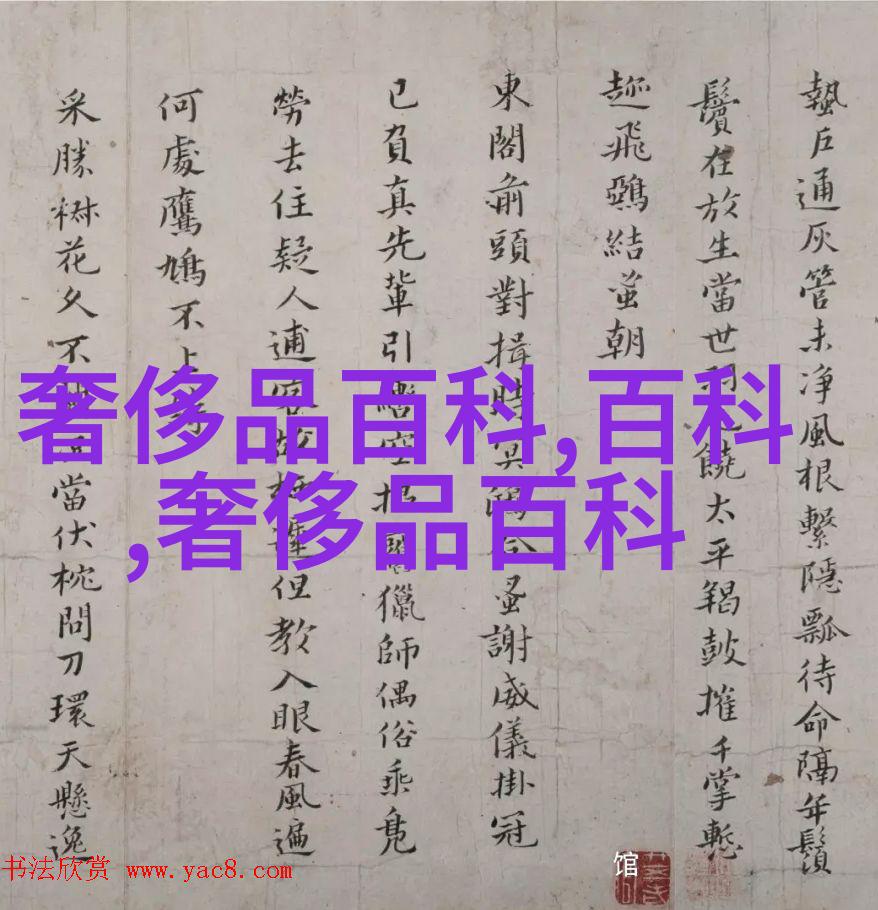 蟄戶通灰管未净風根繫隱瓢待命隔年鬚
鬢在放生當世饒太平羯鼓摧千掌慙
趂飛鵶結蚩朝
東閣前頭對揖時蚤謝威儀掛冠
已負真先輩引獵師偶俗乘凫
勞去住疑人逋但教入眼春風遍
何處鷹鳩不上
采勝樹花久不當伏枕問刀環天懸逸
奢侈品百科,百科
,奢侈品百科
馆
书法欣赏 www.yac8.com